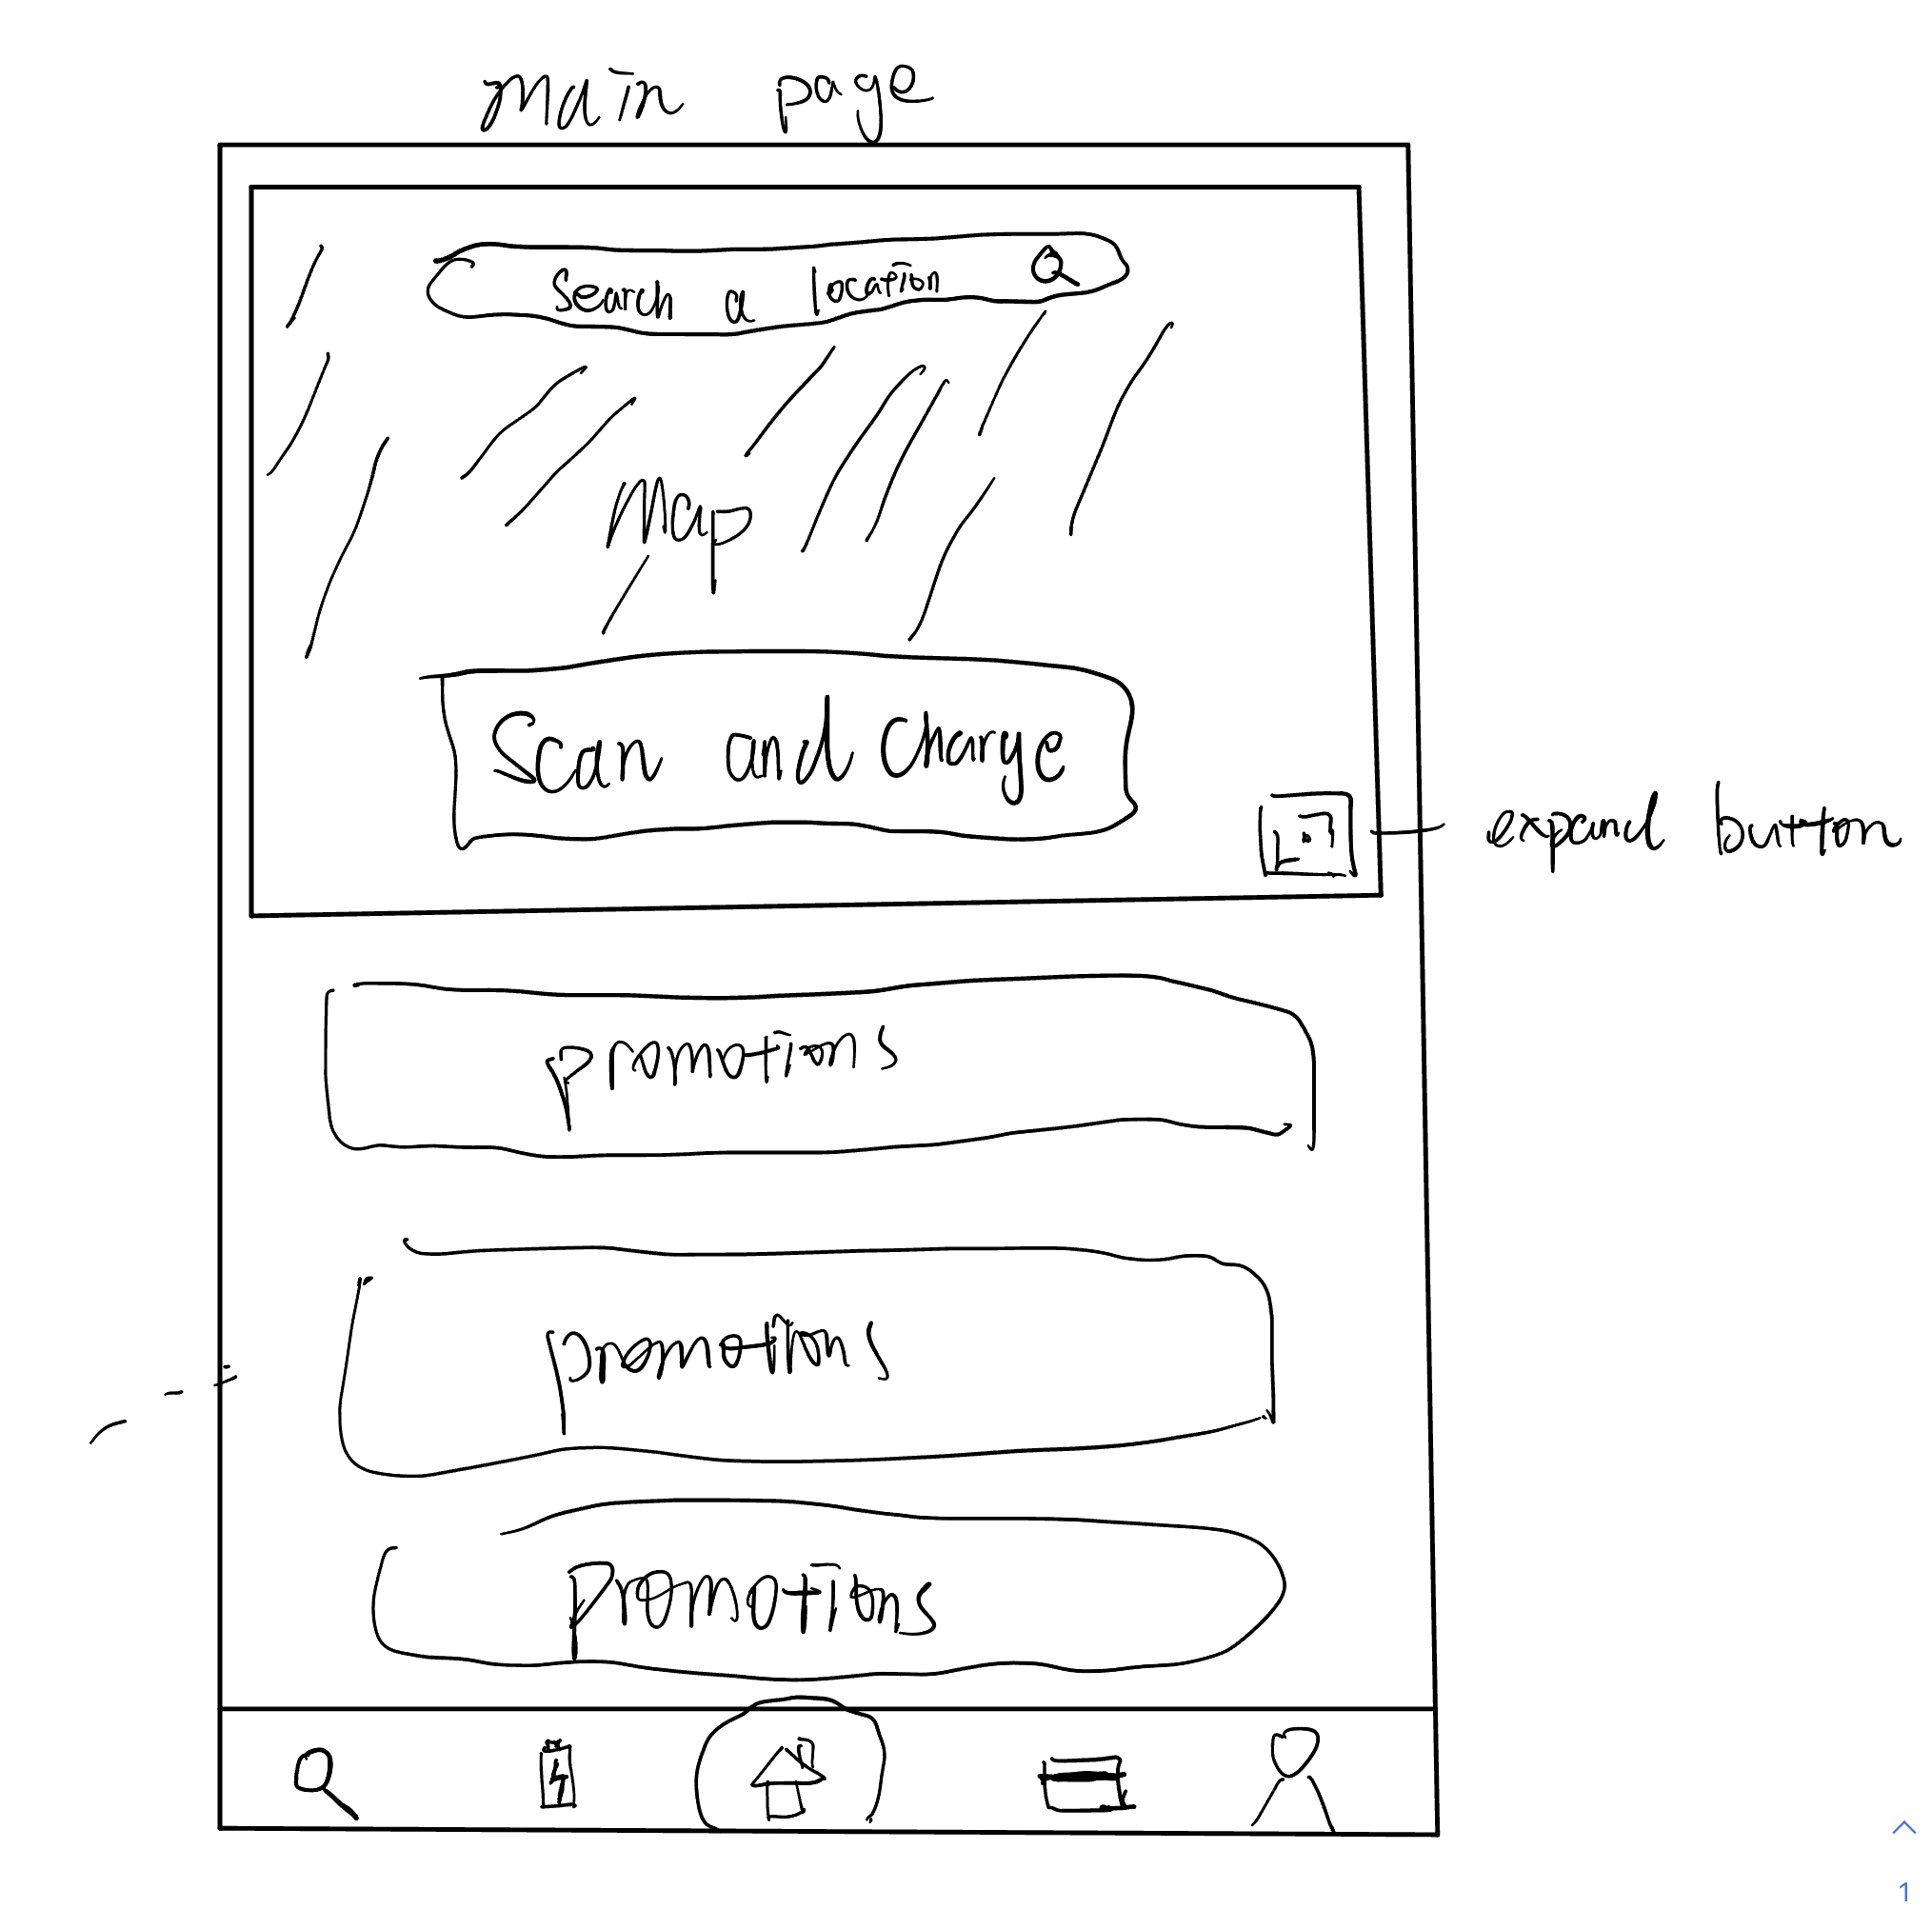 main page
Search a location
Map
Scan and Charge
expand button
promotions
promotions
promotions
1